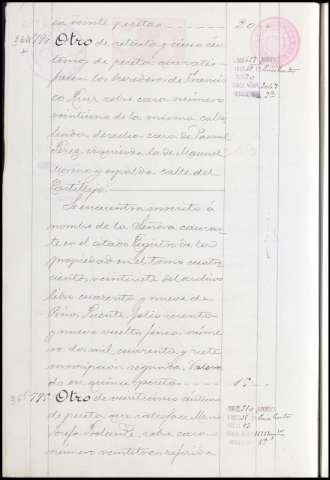 en veinte pesetas - - - 20 -
Otro de setenta y cinco cén
timos de peseta que satis-
facen los herederos de Francis
co Cruz sobre casa número
veintiuno de la misma calle
linda derecha casa de Manuel
Pérez, izquierda la de Manuel
y espalda calle del
Castillejo.
Se encuentra inscrito á
nombre de la Señora causan
te en el citado Registro de la
propiedad en el tomo cuatro
cientos veintisiete del archivo
libro cuarenta y nueve de
Puente, folio ciento
y nueve vuelto, finca núme
ro dos mil cuarenta y siete
inscripción segunda. Valora
do en quince pesetas - - - 15 -
795 Otro de veinticinco céntimos
de peseta que satisface María
Josefa sobre casa
número veintitres referida